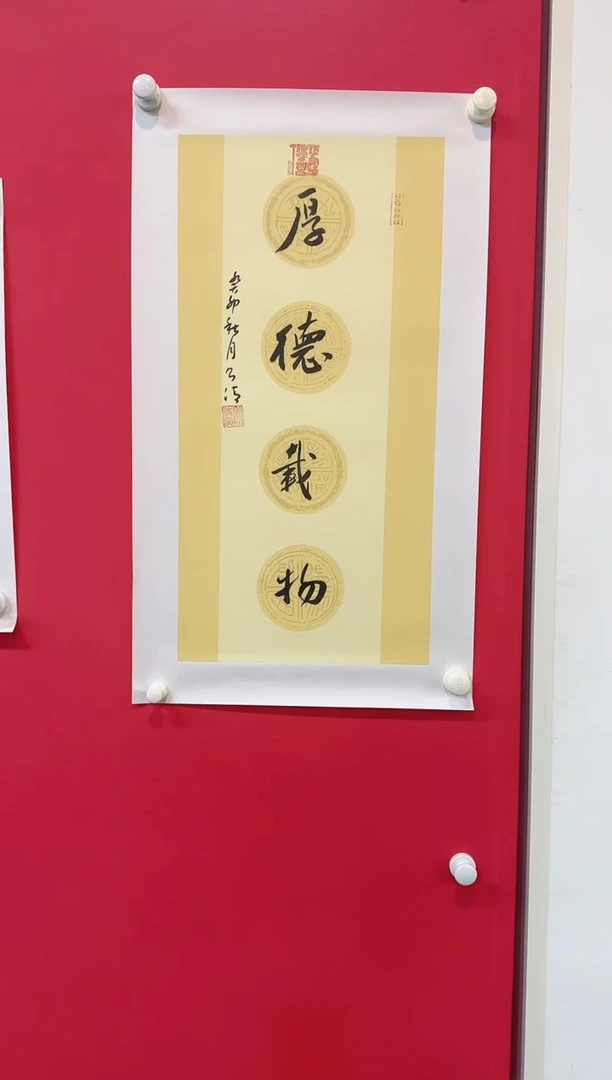 厚德载物
癸卯秋月